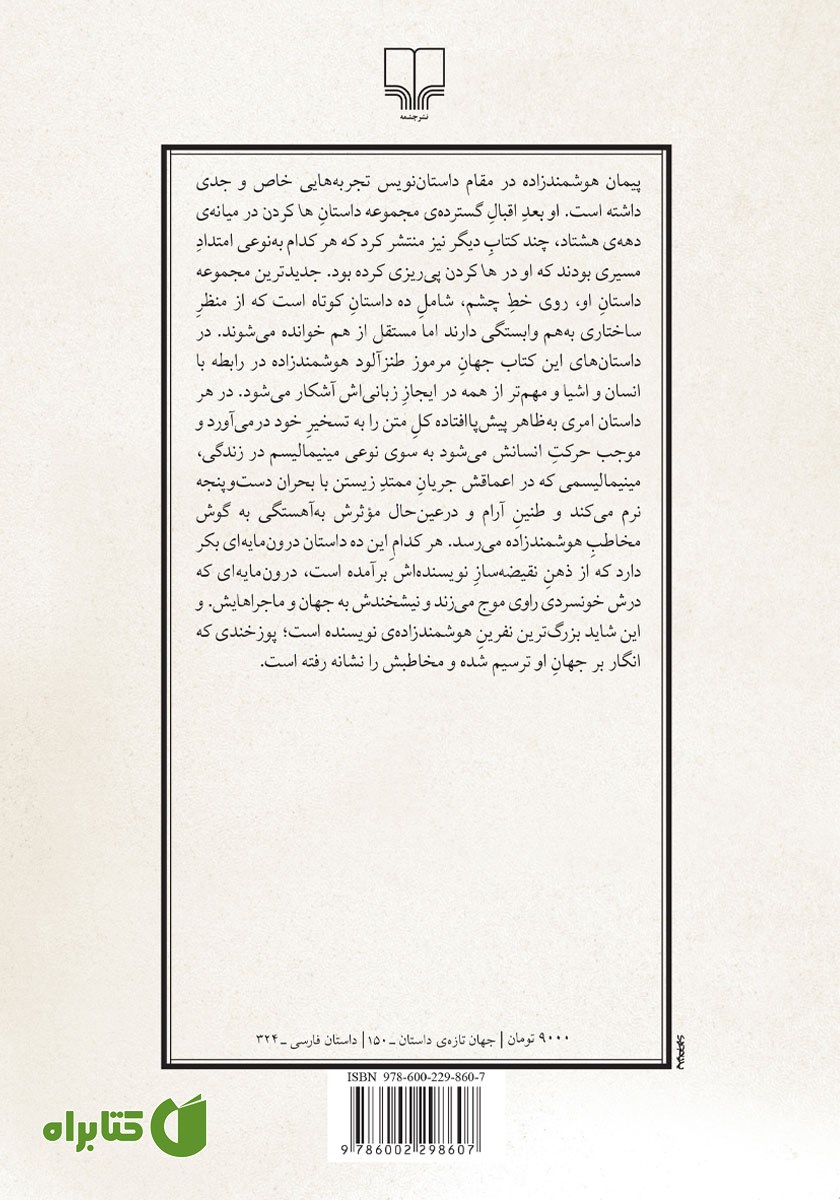 نشرچشمه
پیمان هوشمندزاده در مقام داستان‌نویس تجربه‌هایی خاص و جدی
داشته است. او بعدِ اقبالِ گسترده‌ی مجموعه داستانِ ها کردن در میانه‌ی
دهه‌ی هشتاد، چند کتابِ دیگر نیز منتشر کرد که هر کدام به‌نوعی امتدادِ
مسیری بودند که او در ها کردن پی‌ریزی کرده بود. جدیدترین مجموعه
داستانِ او، روی خطِ چشم، شاملِ ده داستانِ کوتاه است که از منظرِ
ساختاری به‌هم وابستگی دارند اما مستقل از هم خوانده می‌شوند. در
داستان‌های این کتاب جهانِ مرموز طنزآلود هوشمندزاده در رابطه با
انسان و اشیا و مهم‌تر از همه در ایجازِ زبانی‌اش آشکار می‌شود. در هر
داستان امری به‌ظاهر پیش‌پاافتاده کلِ متن را به تسخیرِ خود درمی‌آورد و
موجب حرکتِ انسانش می‌شود به سوی نوعی مینیمالیسم در زندگی،
مینیمالیسمی که در اعماقش جریانِ ممتدِ زیستن با بحران دست‌وپنجه
نرم می‌کند و طنینِ آرام و درعین‌حال مؤثرش به‌آهستگی به گوش
مخاطبِ هوشمندزاده می‌رسد. هر کدامِ این ده داستان درون‌مایه‌ای بکر
دارد که از ذهنِ نقیضه‌سازِ نویسنده‌اش برآمده است، درون‌مایه‌ای که
درش خونسردی راوی موج می‌زند و نیشخندش به جهان و ماجراهایش. و
این شاید بزرگ‌ترین نفرینِ هوشمندزاده‌ی نویسنده است؛ پوزخندی که
انگار بر جهانِ او ترسیم شده و مخاطبش را نشانه رفته است.
۹۰۰۰ تومان | جهان تازه‌ی داستان ـ ۱۵۰ | داستان فارسی ـ ۳۲۴
ISBN 978-600-229-860-7
9 786002 298607
کتابراه